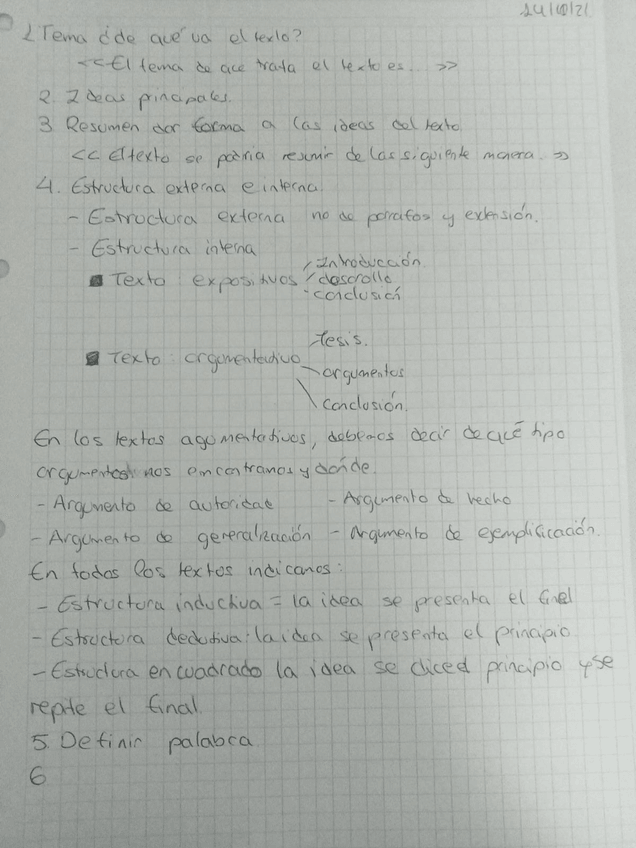 1 Tema ¿de qué va el texto?
<<El tema de que trata el texto es... >>
2. Ideas principales.
3 Resumen dar forma a las ideas del texto
<< El texto se podria resumir de las siguiente manera. >>
4. Estructura externa e interna.
- Estructura externa no de parrafos y extensión.
- Estructura interna
Texto expositivos / Introducción
/ desarrollo
- conclusión
Texto argumentativo Tesis.
argumentos
conclusión.
En los textos agumentativos, debemos decir de qué tipo
argumentos nos encontramos y dónde.
- Argumento de autoridad - Argumento de hecho
- Argumento de generalización - Argumento de ejemplificación.
En todos los textos indicamos:
- Estructura inductiva = la idea se presenta el final
- Estructura dedutiva: la idea se presenta el principio
- Estructura encuadrado la idea se dice principio y se
repite el final.
5. Definir palabra
6